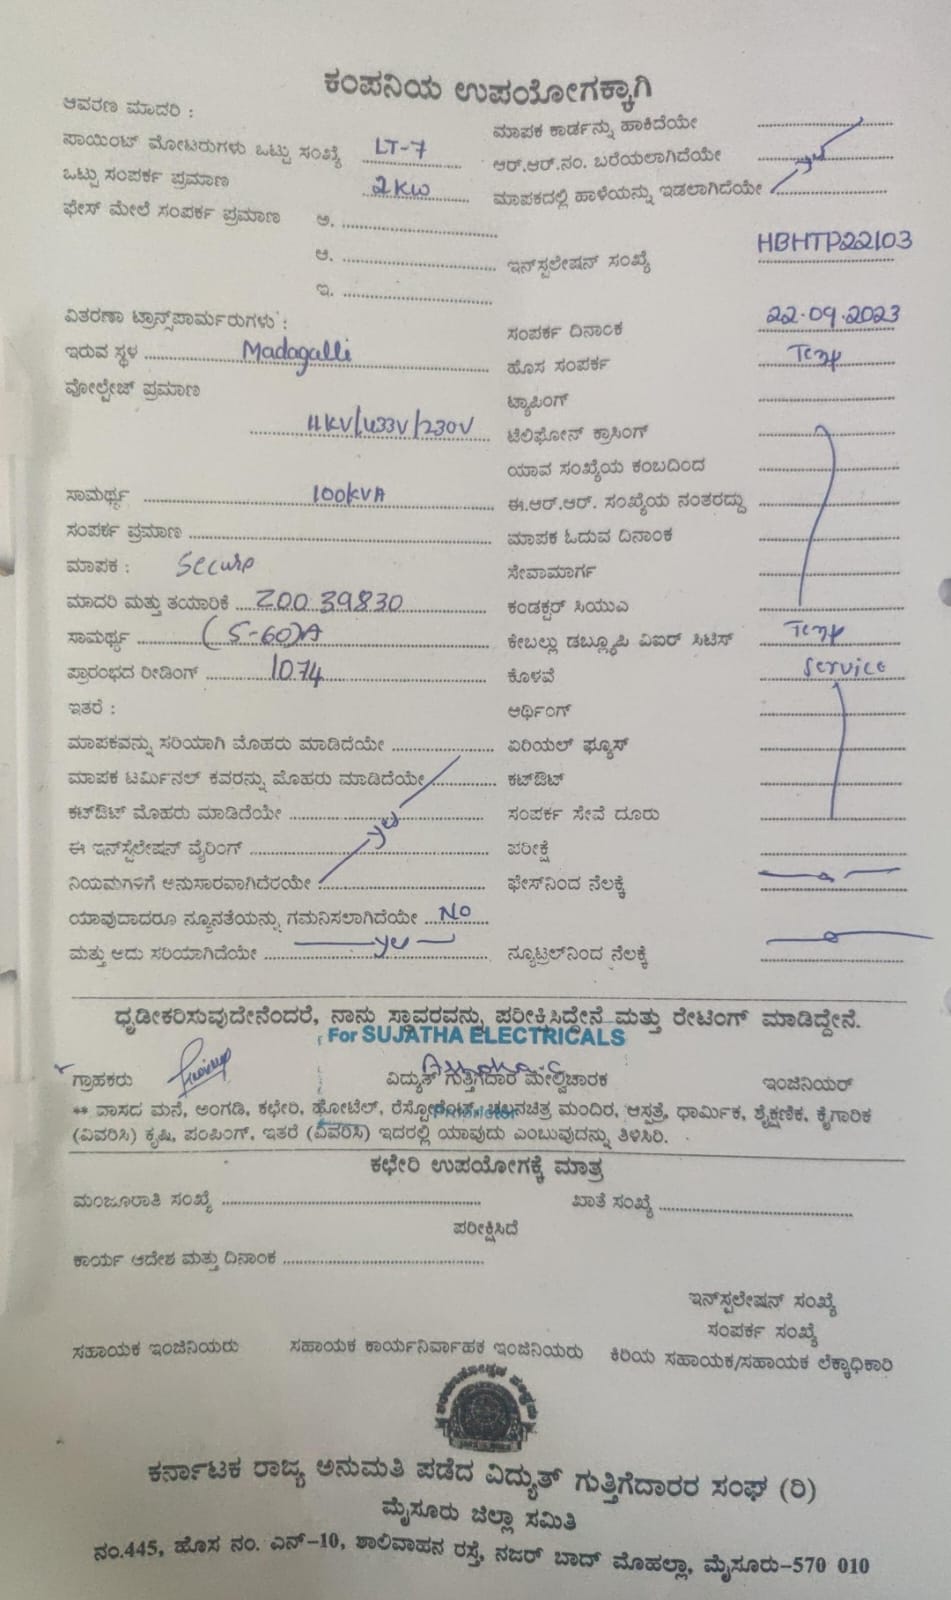 ಕಂಪನಿಯ ಉಪಯೋಗಕ್ಕಾಗಿ
ಆವರಣ ಮಾದರಿ :
ಮಾಪಕ ಕಾರ್ಡನ್ನು ಹಾಕಿದೆಯೇ
ಪಾಯಿಂಟ್ ಮೋಟರುಗಳು ಒಟ್ಟು ಸಂಖ್ಯೆ LT-7
ಆರ್.ಆರ್.ನಂ. ಬರೆಯಲಾಗಿದೆಯೇ yes
ಒಟ್ಟು ಸಂಪರ್ಕ ಪ್ರಮಾಣ 2KW
ಮಾಪಕದಲ್ಲಿ ಹಾಳೆಯನ್ನು ಇಡಲಾಗಿದೆಯೇ
ಫೇಸ್ ಮೇಲೆ ಸಂಪರ್ಕ ಪ್ರಮಾಣ ಅ.
ಆ.
ಇನ್‌ಸ್ಟಲೇಷನ್ ಸಂಖ್ಯೆ HBHTP22103
ಇ.
ವಿತರಣಾ ಟ್ರಾನ್ಸ್‌ಪಾರ್ಮರುಗಳು :
ಸಂಪರ್ಕ ದಿನಾಂಕ 22.09.2023
ಇರುವ ಸ್ಥಳ Madagalli
ಹೊಸ ಸಂಪರ್ಕ Temp
ವೋಲ್ಟೇಜ್ ಪ್ರಮಾಣ
ಟ್ಯಾಪಿಂಗ್
11KV/433V/230V
ಟೆಲಿಫೋನ್ ಕ್ರಾಸಿಂಗ್
ಯಾವ ಸಂಖ್ಯೆಯ ಕಂಬದಿಂದ
ಸಾಮರ್ಥ್ಯ 100KVA
ಈ.ಆರ್.ಆರ್. ಸಂಖ್ಯೆಯ ನಂತರದ್ದು
ಸಂಪರ್ಕ ಪ್ರಮಾಣ
ಮಾಪಕ ಓದುವ ದಿನಾಂಕ
ಮಾಪಕ : Secure
ಸೇವಾಮಾರ್ಗ
ಮಾದರಿ ಮತ್ತು ತಯಾರಿಕೆ Z0039830
ಕಂಡಕ್ಟರ್ ಸಿಯುಎ
ಸಾಮರ್ಥ್ಯ (5-60)A
ಕೇಬಲ್ಲು ಡಬ್ಲ್ಯೂಪಿ ವಿಐಆರ್ ಸಿಟಿಸ್ Temp
ಪ್ರಾರಂಭದ ರೀಡಿಂಗ್ 1074
ಕೊಳವೆ Service
ಇತರೆ :
ಆರ್ಥಿಂಗ್
ಮಾಪಕವನ್ನು ಸರಿಯಾಗಿ ಮೊಹರು ಮಾಡಿದೆಯೇ
ಏರಿಯಲ್ ಫ್ಯೂಸ್
ಮಾಪಕ ಟರ್ಮಿನಲ್ ಕವರನ್ನು ಮೊಹರು ಮಾಡಿದೆಯೇ
ಕಟ್‌ಔಟ್
ಕಟ್‌ಔಟ್ ಮೊಹರು ಮಾಡಿದೆಯೇ yes
ಸಂಪರ್ಕ ಸೇವೆ ದೂರು
ಈ ಇನ್‌ಸ್ಟೆಲೇಷನ್ ವೈರಿಂಗ್
ಪರೀಕ್ಷೆ
ನಿಯಮಗಳಿಗೆ ಅನುಸಾರವಾಗಿದೆರಯೇ
ಫೇಸ್‌ನಿಂದ ನೆಲಕ್ಕೆ
ಯಾವುದಾದರೂ ನ್ಯೂನತೆಯನ್ನು ಗಮನಿಸಲಾಗಿದೆಯೇ No
ಮತ್ತು ಅದು ಸರಿಯಾಗಿದೆಯೇ yes
ನ್ಯೂಟ್ರಲ್‌ನಿಂದ ನೆಲಕ್ಕೆ
ಧೃಡೀಕರಿಸುವುದೇನೆಂದರೆ, ನಾನು ಸ್ಥಾವರವನ್ನು ಪರೀಕ್ಷಿಸಿದ್ದೇನೆ ಮತ್ತು ರೇಟಿಂಗ್ ಮಾಡಿದ್ದೇನೆ.
For SUJATHA ELECTRICALS
ಗ್ರಾಹಕರು
ವಿದ್ಯುತ್ ಗುತ್ತಿಗೆದಾರ ಮೇಲ್ವಿಚಾರಕ
ಇಂಜಿನಿಯರ್
** ವಾಸದ ಮನೆ, ಅಂಗಡಿ, ಕಛೇರಿ, ಹೋಟೆಲ್, ರೆಸ್ಟೋರೆಂಟ್, ಚಲನಚಿತ್ರ ಮಂದಿರ, ಆಸ್ಪತ್ರೆ, ಧಾರ್ಮಿಕ, ಶೈಕ್ಷಣಿಕ, ಕೈಗಾರಿಕ
(ವಿವರಿಸಿ) ಕೃಷಿ, ಪಂಪಿಂಗ್, ಇತರೆ (ವಿವರಿಸಿ) ಇದರಲ್ಲಿ ಯಾವುದು ಎಂಬುವುದನ್ನು ತಿಳಿಸಿರಿ.
ಕಛೇರಿ ಉಪಯೋಗಕ್ಕೆ ಮಾತ್ರ
ಮಂಜೂರಾತಿ ಸಂಖ್ಯೆ
ಖಾತೆ ಸಂಖ್ಯೆ
ಪರೀಕ್ಷಿಸಿದೆ
ಕಾರ್ಯ ಆದೇಶ ಮತ್ತು ದಿನಾಂಕ
ಇನ್‌ಸ್ಪಲೇಷನ್ ಸಂಖ್ಯೆ
ಸಂಪರ್ಕ ಸಂಖ್ಯೆ
ಸಹಾಯಕ ಇಂಜಿನಿಯರು
ಸಹಾಯಕ ಕಾರ್ಯನಿರ್ವಾಹಕ ಇಂಜಿನಿಯರು
ಕಿರಿಯ ಸಹಾಯಕ/ಸಹಾಯಕ ಲೆಕ್ಕಾಧಿಕಾರಿ
ಕರ್ನಾಟಕ ರಾಜ್ಯ ಅನುಮತಿ ಪಡೆದ ವಿದ್ಯುತ್ ಗುತ್ತಿಗೆದಾರರ ಸಂಘ (ರಿ)
ಮೈಸೂರು ಜಿಲ್ಲಾ ಸಮಿತಿ
ನಂ.445, ಹೊಸ ನಂ. ಎನ್-10, ಶಾಲಿವಾಹನ ರಸ್ತೆ, ನಜರ್ ಬಾದ್ ಮೊಹಲ್ಲಾ, ಮೈಸೂರು-570 010